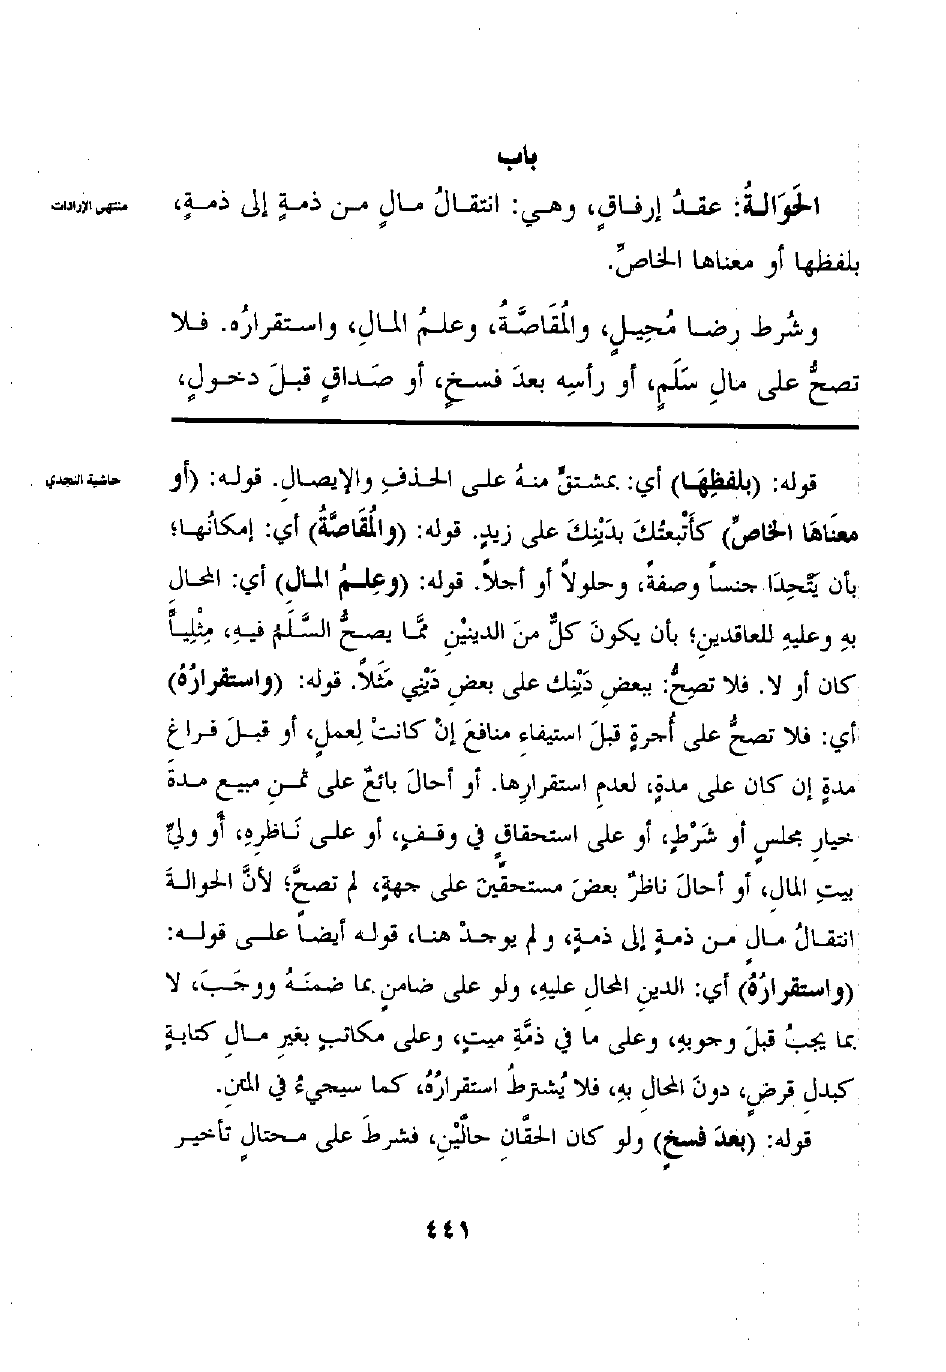 باب
الحَوَالةُ: عقدُ إرفاقٍ، وهي: انتقالُ مالٍ من ذمةٍ إلى ذمةٍ،
منتهى الإرادات
بلفظها أو معناها الخاصِّ.
وشُرط رضا مُحيلٍ، والمُقَاصَّةُ، وعلمُ المالِ، واستقرارُه. فلا
تصحُّ على مالِ سَلَمٍ، أو رأسِه بعدَ فسخٍ، أو صَداقٍ قبلَ دخولٍ،
قوله: (بلفظِهَا) أي: بمشتقٍّ منهُ على الحذفِ والإيصالِ. قوله: (أو
حاشية النجدي
معنَاهَا الخاصِّ) كأَتْبعتُكَ بدَيْنِكَ على زيدٍ. قوله: (والمُقَاصَّةُ) أي: إمكانُها؛
بأن يَتَّحِدَا جنساً وصفةً، وحلولاً أو أجلاً. قوله: (وعِلمُ المالِ) أي: المحال
بهِ وعليهِ للعاقدينِ؛ بأن يكونَ كلٌّ منَ الدينيْنِ ممَّا يصحُّ السَّلَمُ فيهِ، مِثْلِيّاً
كان أو لا. فلا تصحُّ: ببعضِ دَيْنِك على بعضِ دَيْنِي مَثَلاً. قوله: (واستقرارُهُ)
أي: فلا تصحُّ على أُجرةٍ قبلَ استيفاءِ منافعَ إنْ كانتْ لِعملٍ، أو قبلَ فراغِ
مدةٍ إن كان على مدةٍ، لعدمِ استقرارِها. أو أحالَ بائعٌ على ثمنِ مبيعٍ مدةَ
خيارِ مجلسٍ أو شَرْطٍ، أو على استحقاقٍ في وقفٍ، أو على نَاظرِهِ، أو وليِّ
بيتِ المالِ، أو أحالَ ناظرٌ بعضَ مستحقِّينَ على جهةٍ، لم تصحَّ؛ لأنَّ الحوالةَ
انتقالُ مالٍ من ذمةٍ إلى ذمةٍ، ولم يوجدْ هنا، قوله أيضاً على قوله:
(واستقرارُهُ) أي: الدينِ المحالِ عليهِ، ولو على ضامنٍ بما ضمنَهُ ووجَبَ، لا
بما يجبُ قبلَ وجوبِهِ، وعلى ما في ذمَّةِ ميتٍ، وعلى مكاتبٍ بغيرِ مالِ كتابةٍ
كبدلِ قرضٍ، دونَ المحالِ بهِ، فلا يُشترطُ استقرارُهُ، كما سيجيءُ في المتنِ.
قوله: (بعدَ فسخٍ) ولو كان الحقَّانِ حالَّيْنِ، فشرطَ على محتالٍ تأخيرَ
٤٤١